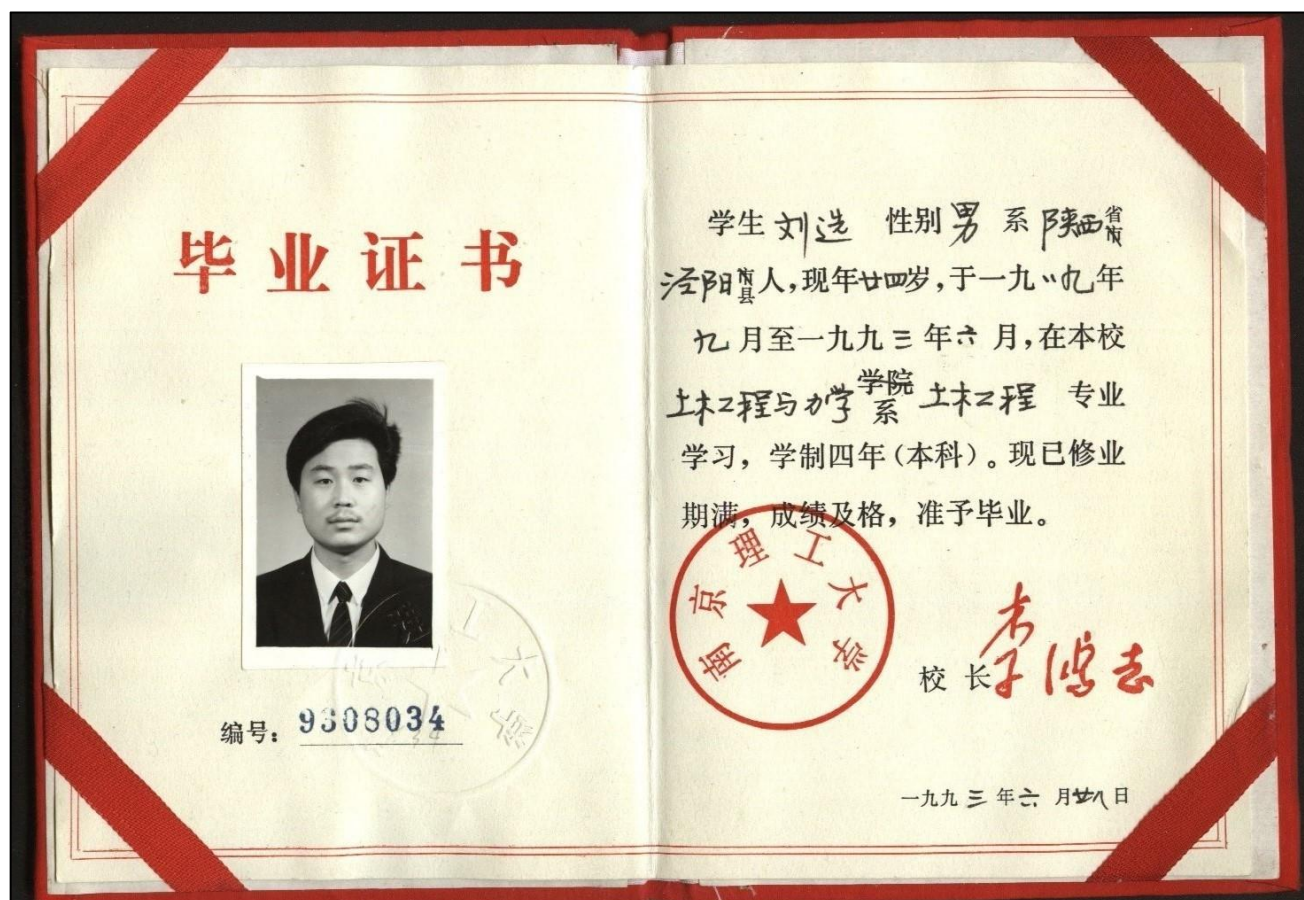 毕业证书
编号：9308034
学生 刘选 性别 男 系 陕西省市
泾阳市县人，现年廿四岁，于一九八九年
九月至一九九三年六月，在本校
土木工程与力学学院系 土木工程 专业
学习，学制四年（本科）。现已修业
期满，成绩及格，准予毕业。
南京理工大学
校长 李鸿志
一九九三年六月廿八日